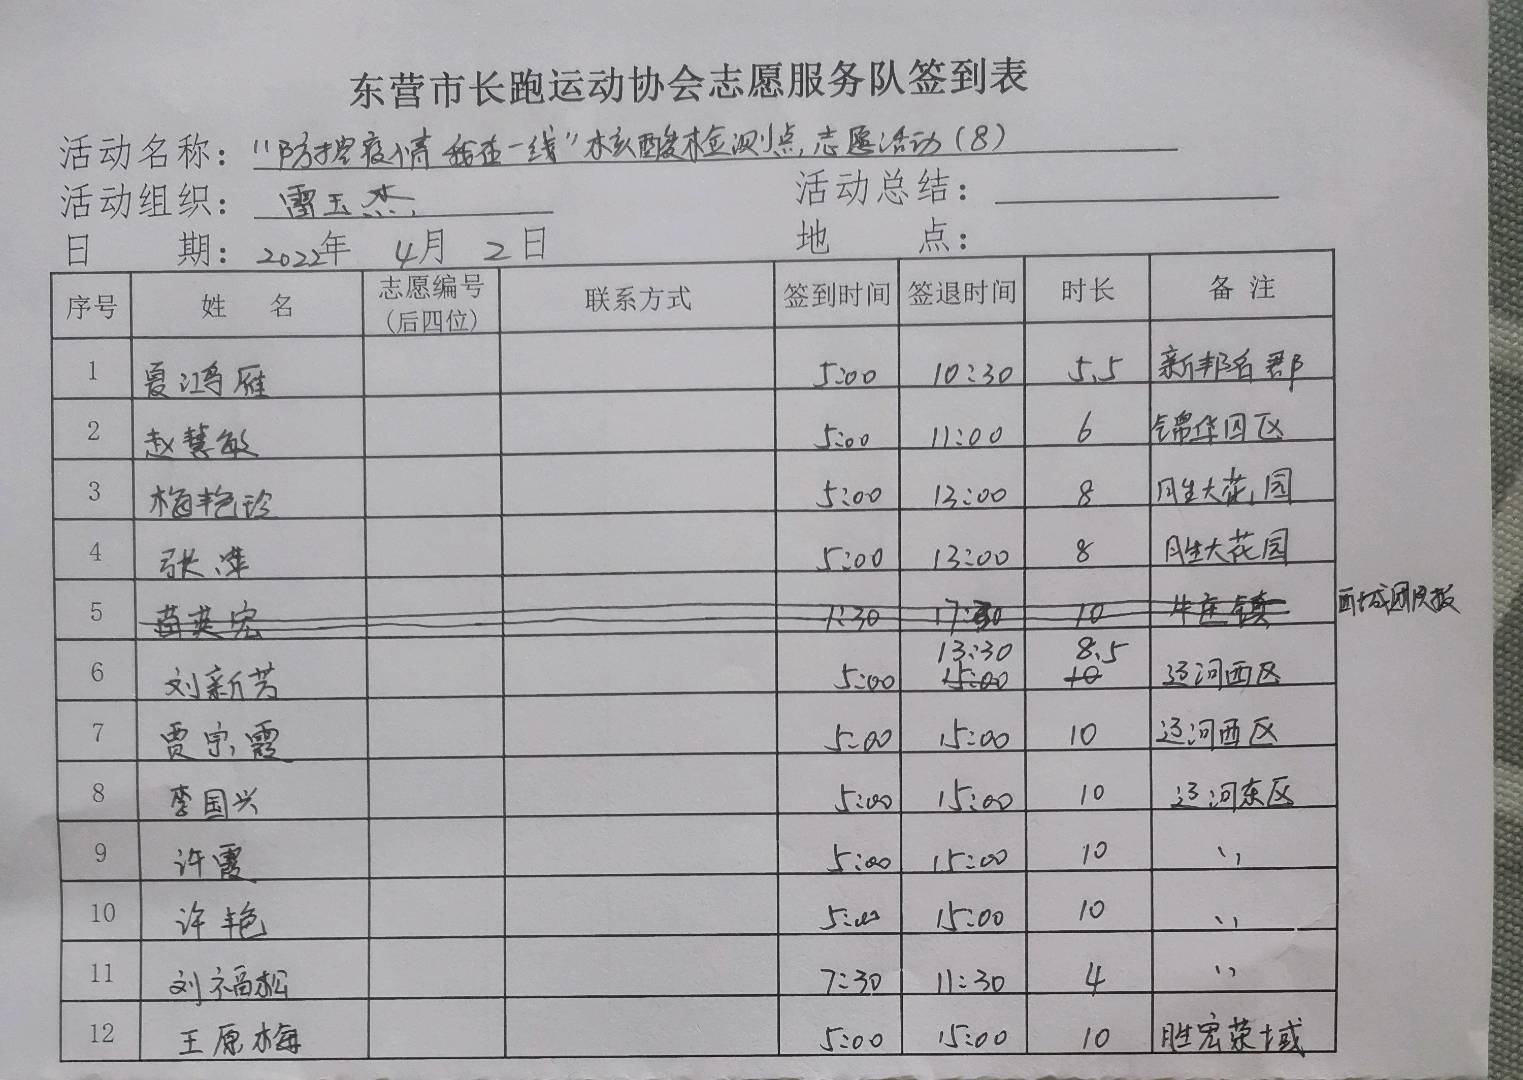 东营市长跑运动协会志愿服务队签到表
活动名称：“防控疫情 我在一线”核酸检测点志愿活动（8）
活动组织：雷玉杰 活动总结：
日 期：2022年 4月 2日 地 点：
序号 姓 名 志愿编号（后四位） 联系方式 签到时间 签退时间 时长 备 注
1 夏鸿雁 5:00 10:30 5.5 新邦名郡
2 赵慧敏 5:00 11:00 6 锦华四区
3 梅艳珍 5:00 13:00 8 胜大花园
4 张萍 5:00 13:00 8 胜大花园
5 苗英宏 7:30 17:30 10 牛庄镇 西城团队报
6 刘新芳 5:00 13:30 15:00 8.5 10 辽河西区
7 贾宗霞 5:00 15:00 10 辽河西区
8 李国兴 5:00 15:00 10 辽河东区
9 许霞 5:00 15:00 10 ،،
10 许艳 5:00 15:00 10 ،،
11 刘福松 7:30 11:30 4 ،،
12 王原梅 5:00 15:00 10 胜宏荣域